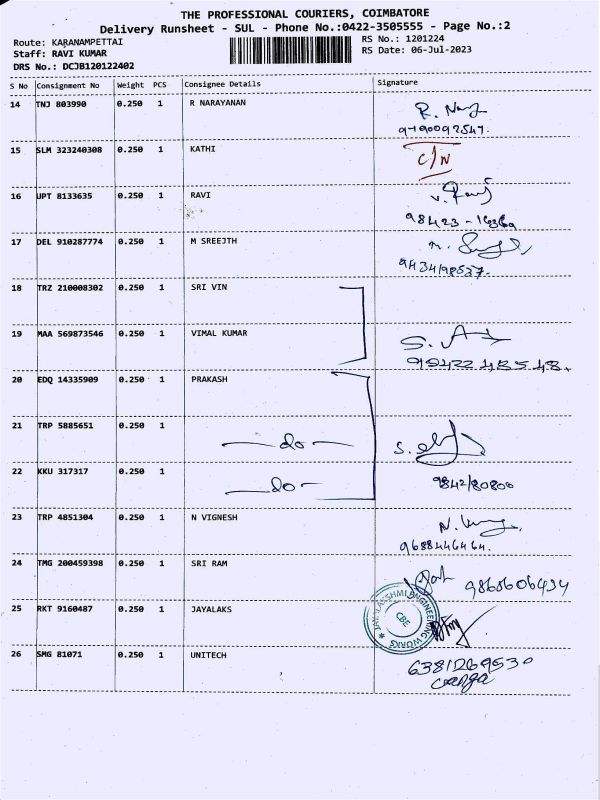 THE PROFESSIONAL COURIERS, COIMBATORE
Delivery Runsheet - SUL - Phone No.:0422-3505555 - Page No.:2
Route: KARANAMPETTAI
RS No.: 1201224
Staff: RAVI KUMAR
RS Date: 06-Jul-2023
DRS No.: DCJB120122402
S No Consignment No Weight PCS Consignee Details Signature
14 TNJ 803990 0.250 1 R NARAYANAN
15 SLM 323240308 0.250 1 KATHI C/N
16 UPT 8133635 0.250 1 RAVI
98423-16369
17 DEL 910287774 0.250 1 M SREEJTH
9434198537.
18 TRZ 210008302 0.250 1 SRI VIN
19 MAA 569873546 0.250 1 VIMAL KUMAR
20 EDQ 14335909 0.250 1 PRAKASH
21 TRP 5885651 0.250 1
— do —
22 KKU 317317 0.250 1
— do —
9842180800
23 TRP 4851304 0.250 1 N VIGNESH
9688446464.
24 TMG 200459398 0.250 1 SRI RAM
25 RKT 9160487 0.250 1 JAYALAKS
LAKSHMI ENGINEERING WORKS
CBE
26 SMG 81071 0.250 1 UNITECH
6381269530